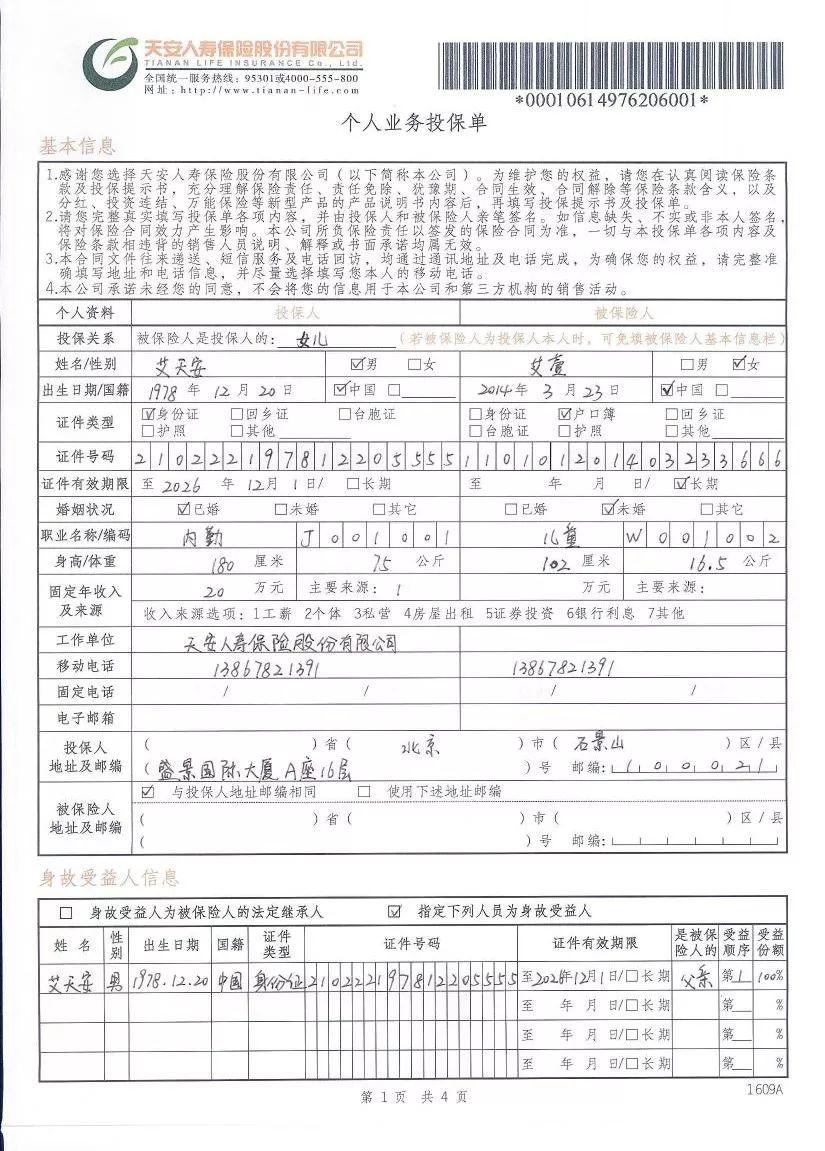 天安人寿保险股份有限公司
TIANAN LIFE INSURANCE Co., Ltd.
全国统一服务热线：95301或4000-555-800
网址：http://www.tianan-life.com
*00010614976206001*
个人业务投保单
基本信息
1.感谢您选择天安人寿保险股份有限公司（以下简称本公司）。为维护您的权益，请您在认真阅读保险条
款及投保提示书，充分理解保险责任、责任免除、犹豫期、合同生效、合同解除等保险条款含义，以及
分红、投资连结、万能保险等新型产品的产品说明书内容后，再填写投保提示书及投保单。
2.请您完整真实填写投保单各项内容，并由投保人和被保险人亲笔签名。如信息缺失、不实或非本人签名，
将对保险合同效力产生影响。本公司所负保险责任以签发的保险合同为准，一切与本投保单各项内容及
保险条款相违背的销售人员说明、解释或书面承诺均属无效。
3.本合同文件往来递送、短信服务及电话回访，均通过通讯地址及电话完成，为确保您的权益，请完整准
确填写地址和电话信息，并尽量选择填写您本人的移动电话。
4.本公司承诺未经您的同意，不会将您的信息用于本公司和第三方机构的销售活动。
个人资料 投保人 被保险人
投保关系 被保险人是投保人的：女儿 （若被保险人为投保人本人时，可免填被保险人基本信息栏）
姓名/性别 艾天安 ☑男 □女 艾萱 □男 ☑女
出生日期/国籍 1978 年 12 月 20 日 ☑中国 □ 2014 年 3 月 23 日 ☑中国 □
证件类型 ☑身份证 □回乡证 □台胞证 □身份证 ☑户口簿 □回乡证
□护照 □其他 □台胞证 □护照 □其他
证件号码 210222197812205555 110101201403233666
证件有效期限 至 2026 年 12月 1日/ □长期 至 年 月 日/ ☑长期
婚姻状况 ☑已婚 □未婚 □其它 □已婚 ☑未婚 □其它
职业名称/编码 内勤 J001001 儿童 W001002
身高/体重 180 厘米 75 公斤 102 厘米 16.5 公斤
固定年收入
及来源
20 万元 主要来源：1 万元 主要来源：
收入来源选项：1工薪 2个体 3私营 4房屋出租 5证券投资 6银行利息 7其他
工作单位 天安人寿保险股份有限公司
移动电话 13867821391 13867821391
固定电话 / / / /
电子邮箱
投保人
地址及邮编
（ ）省（ 北京 ）市（ 石景山 ）区/县
（盛景国际大厦A座16层 ）号 邮编：100021
被保险人
地址及邮编
☑ 与投保人地址邮编相同 □ 使用下述地址邮编
（ ）省（ ）市（ ）区/县
（ ）号 邮编：
身故受益人信息
□ 身故受益人为被保险人的法定继承人 ☑ 指定下列人员为身故受益人
姓名 性别 出生日期 国籍 证件类型 证件号码 证件有效期限 是被保险人的 受益顺序 受益份额
艾天安 男 1978.12.20 中国 身份证 210222197812205555 至2026年12月1日/□长期 父亲 第1 100%
至 年 月 日/□长期 第 %
至 年 月 日/□长期 第 %
至 年 月 日/□长期 第 %
第 1 页 共 4 页
1609A